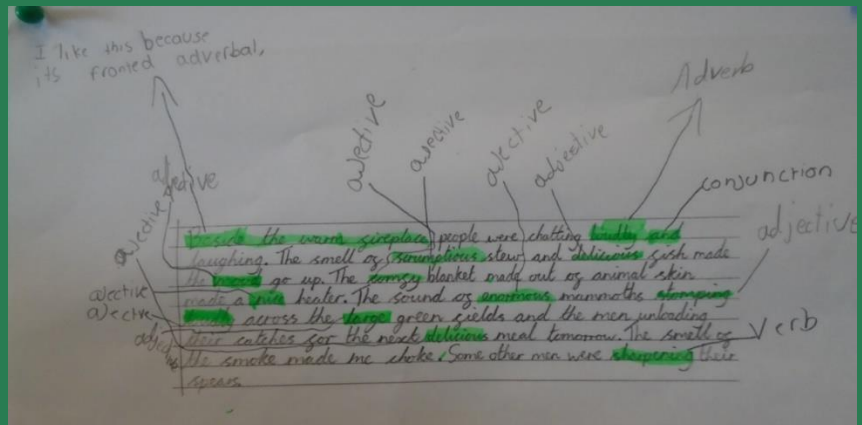 I like this because
its fronted adverbal,
Adverb
ajective
ajective
ajective
adjective
conjunction
adjective
ajective
Beside the warm fireplace people were chatting loudly and
laughing. The smell of scrumptious stew and delicious fish made
the go up. The comfy blanket made out of animal skin
made a nice healer. The sound of enormous mammoths stomping
across the large green fields and the men unloading
their catches for the next delicious meal tomorrow. The smell of
the smoke made me choke. Some other men were sharpening their
spears
ajective
ajective
Verb